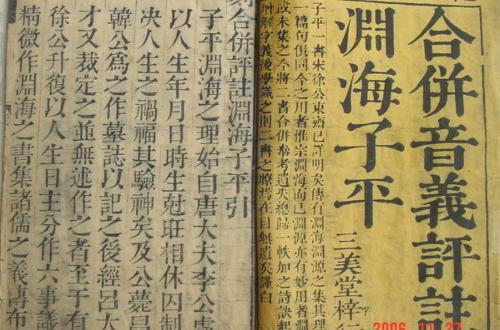 合併音義評註
淵海子平
三美堂梓
子平一書宋徐公東齋已詳明矣傳有淵海淵源之集其理
一篇句俱同今之用者惟宗淵海而已淵源亦有妙用者淵
或未集之今將二書合併參考遺失總歸一帙加之詩訣
解字義後學識之則二書之瞭然在目無遺矣謹白
刻合併評註淵海子平引
子平淵海之理始自唐大夫李公虛
以人生年月日時生尅旺相休囚制
決人生之禍福其驗神矣及公薨昌
韓公為之作墓誌以記之後經呂大
才又裁定之並無述作之者至于有
徐公升復以人生日主分作六事議
精微作淵海之書集諸儒之義傳布